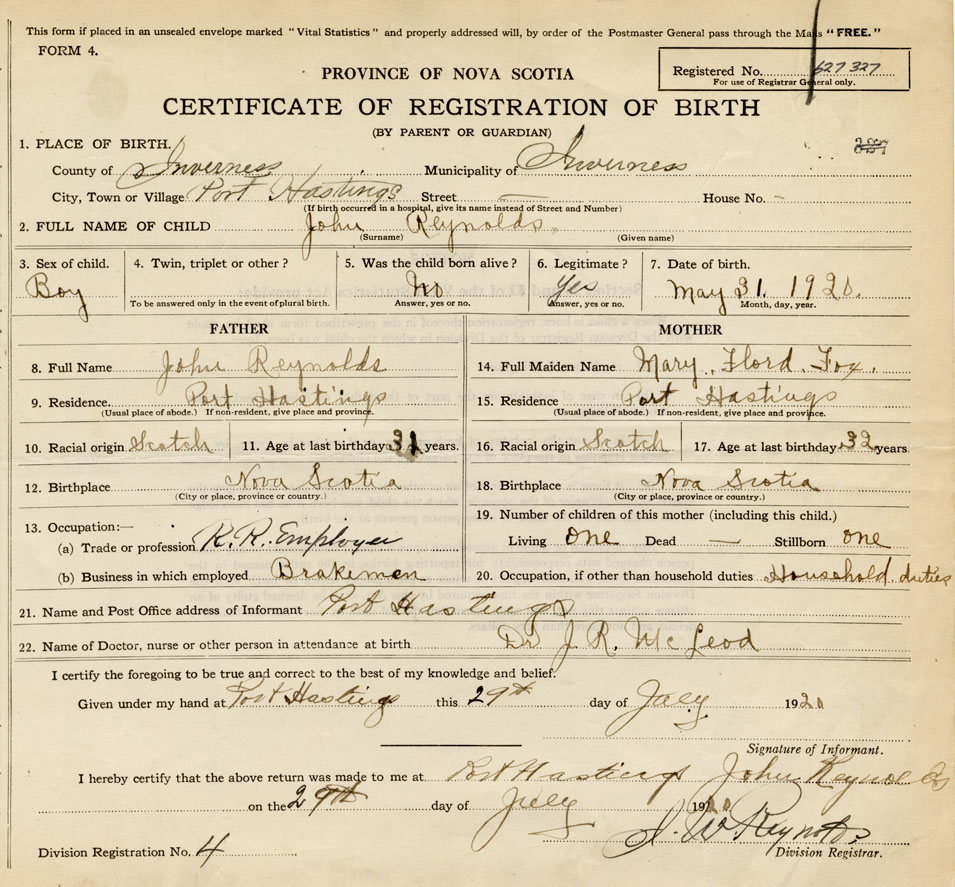 This form if placed in an unsealed envelope marked "Vital Statistics" and properly addressed will, by order of the Postmaster General pass through the Mails "FREE."
FORM 4.
Registered No. 627 327
For use of Registrar General only.
PROVINCE OF NOVA SCOTIA
CERTIFICATE OF REGISTRATION OF BIRTH
(BY PARENT OR GUARDIAN)
1. PLACE OF BIRTH.
County of Inverness Municipality of Inverness
City, Town or Village Port Hastings Street — House No. -
(If birth occurred in a hospital, give its name instead of Street and Number)
2. FULL NAME OF CHILD John Reynolds.
(Surname) (Given name)
3. Sex of child. 4. Twin, triplet or other? 5. Was the child born alive? 6. Legitimate? 7. Date of birth.
Boy No Yes May 31. 1920.
To be answered only in the event of plural birth. Answer, yes or no. Answer, yes or no. Month, day, year.
FATHER MOTHER
8. Full Name John Reynolds 14. Full Maiden Name Mary. Flord. Fox.
9. Residence. Port Hastings 15. Residence Port Hastings
(Usual place of abode.) If non-resident, give place and province. (Usual place of abode.) If non-resident, give place and province.
10. Racial origin Scotch 11. Age at last birthday 31 years. 16. Racial origin Scotch 17. Age at last birthday 32 years.
12. Birthplace Nova Scotia 18. Birthplace Nova Scotia
(City or place, province or country.) (City or place, province or country.)
13. Occupation:— 19. Number of children of this mother (including this child.)
(a) Trade or profession R.R. Employee Living one Dead — Stillborn one
(b) Business in which employed Brakemen 20. Occupation, if other than household duties Household duties
21. Name and Post Office address of Informant Port Hastings
22. Name of Doctor, nurse or other person in attendance at birth Dr J. R. McLeod
I certify the foregoing to be true and correct to the best of my knowledge and belief.
Given under my hand at Port Hastings this 29th day of July 1920
Signature of Informant.
I hereby certify that the above return was made to me at Port Hastings John Reynolds
on the 29th day of July 1920
J. W. Reynolds
Division Registration No. 4 Division Registrar.